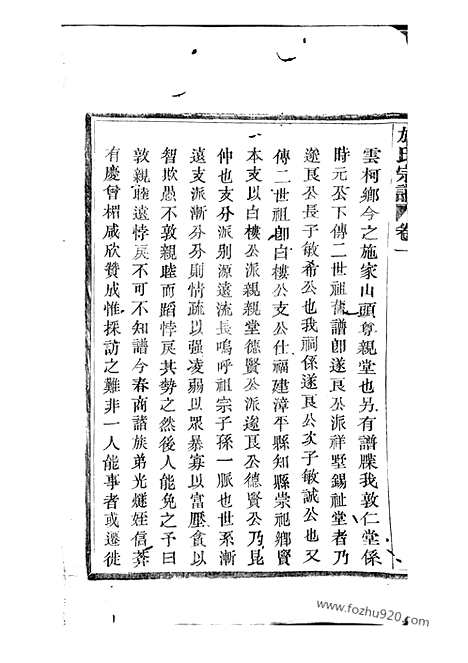 施氏宗譜 卷一
雲柯鄉今之施家山頭尊親堂也另有譜牒我敦仁堂係
時元公下傳二世祖舊譜卽遂良公派祥墅錫祉堂者乃
遂良公長子敏希公也我祠係遂良公次子敏誠公也又
傳二世祖卽白樓公支公仕福建漳平縣知縣崇祀鄉賢
本支以白樓公派親親堂德賢公派遂良公德賢公乃昆
仲也支分派別源遠流長嗚呼祖宗子孫一脈也世系漸
遠支派漸分分則情疏以强凌弱以眾暴寡以富壓貧以
智欺愚不敦親睦而蹈悖戾其勢之然後人能免之予曰
敦親睦遠悖戾不可不知譜今春商諸族弟光燧姪信莽
有慶曾楣咸欣贊成惟採訪之難非一人能事者或遷徙
www.fozhu920.com